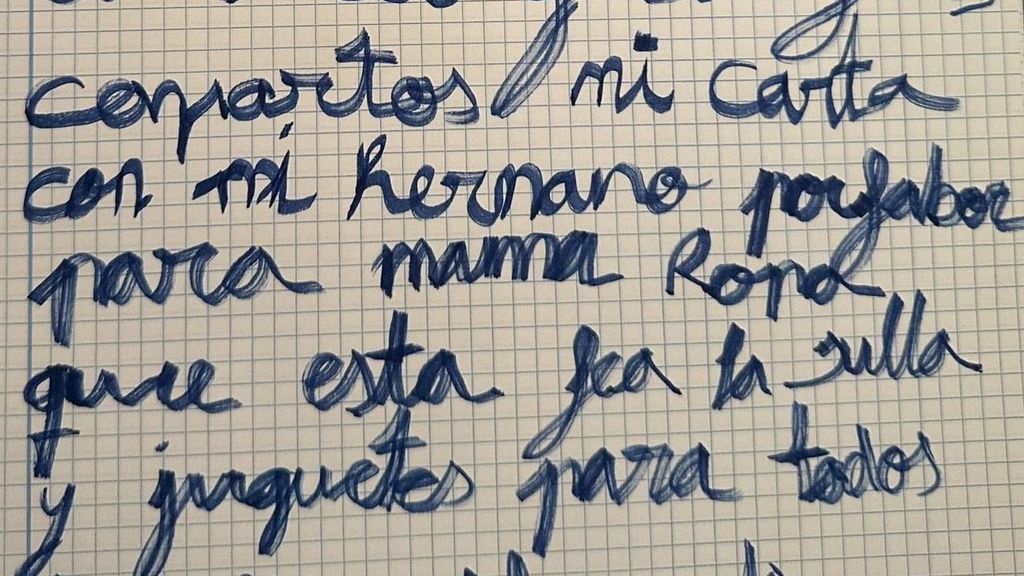 compartos mi carta
con mi hermano porfabor
para mama Ropa
que esta fea la sulla
y juguetes para todos